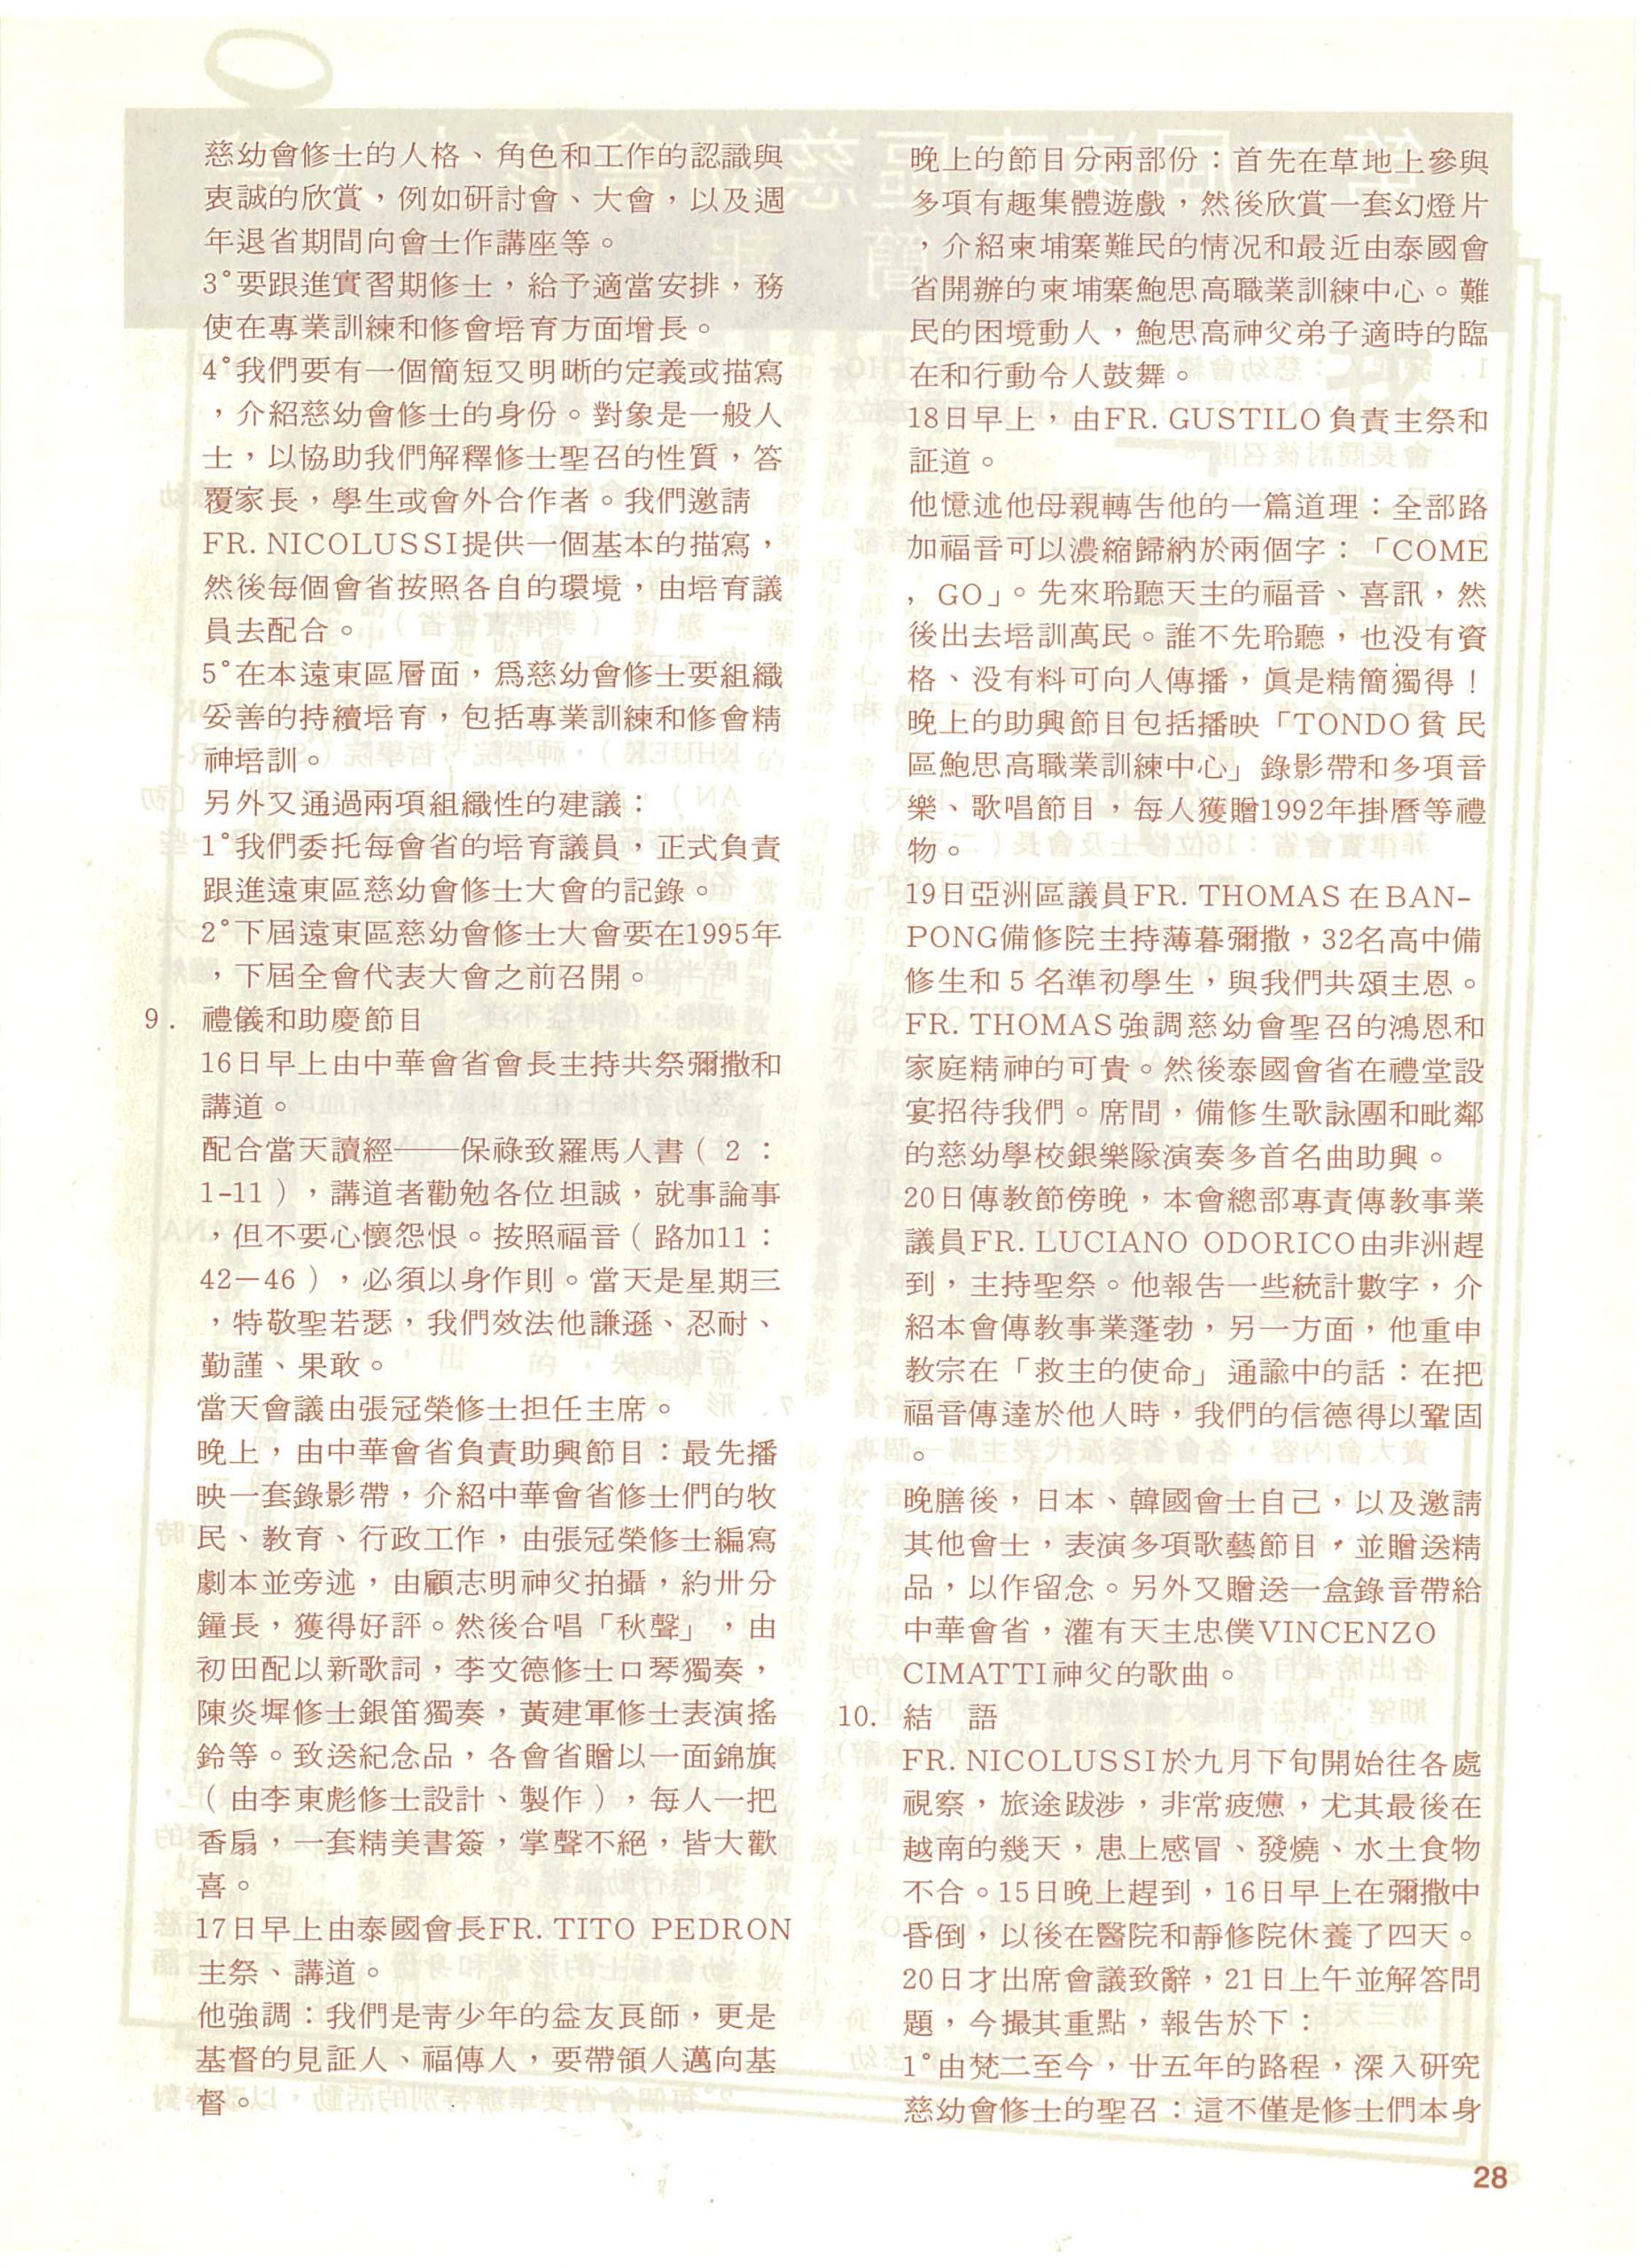 慈幼會修士的人格、角色和工作的認識與
衷誠的欣賞，例如研討會、大會，以及週
年退省期間向會士作講座等。
3°要跟進實習期修士，給予適當安排，務
使在專業訓練和修會培育方面增長。
4°我們要有一個簡短又明晰的定義或描寫
，介紹慈幼會修士的身份。對象是一般人
士，以協助我們解釋修士聖召的性質，答
覆家長，學生或會外合作者。我們邀請
FR. NICOLUSSI提供一個基本的描寫，
然後每個會省按照各自的環境，由培育議
員去配合。
5°在本遠東區層面，爲慈幼會修士要組織
妥善的持續培育，包括專業訓練和修會精
神培訓。
另外又通過兩項組織性的建議：
1°我們委托每會省的培育議員，正式負責
跟進遠東區慈幼會修士大會的記錄。
2°下屆遠東區慈幼會修士大會要在1995年
，下屆全會代表大會之前召開。
9. 禮儀和助慶節目
16日早上由中華會省會長主持共祭彌撒和
講道。
配合當天讀經——保祿致羅馬人書（2：
1-11），講道者勸勉各位坦誠，就事論事
，但不要心懷怨恨。按照福音（路加11：
42－46），必須以身作則。當天是星期三
，特敬聖若瑟，我們效法他謙遜、忍耐、
勤謹、果敢。
當天會議由張冠榮修士担任主席。
晚上，由中華會省負責助興節目：最先播
映一套錄影帶，介紹中華會省修士們的牧
民、教育、行政工作，由張冠榮修士編寫
劇本並旁述，由顧志明神父拍攝，約卅分
鐘長，獲得好評。然後合唱「秋聲」，由
初田配以新歌詞，李文德修士口琴獨奏，
陳炎墀修士銀笛獨奏，黃建軍修士表演搖
鈴等。致送紀念品，各會省贈以一面錦旗
（由李東彪修士設計、製作），每人一把
香扇，一套精美書簽，掌聲不絕，皆大歡
喜。
17日早上由泰國會長FR. TITO PEDRON
主祭、講道。
他強調：我們是靑少年的益友良師，更是
基督的見証人、福傳人，要帶領人邁向基
督。
晚上的節目分兩部份：首先在草地上參與
多項有趣集體遊戲，然後欣賞一套幻燈片
，介紹柬埔寨難民的情况和最近由泰國會
省開辦的柬埔寨鮑思高職業訓練中心。難
民的困境動人，鮑思高神父弟子適時的臨
在和行動令人鼓舞。
18日早上，由FR. GUSTILO負責主祭和
証道。
他憶述他母親轉告他的一篇道理：全部路
加福音可以濃縮歸納於兩個字：「COME
，GO」。先來聆聽天主的福音、喜訊，然
後出去培訓萬民。誰不先聆聽，也没有資
格、没有料可向人傳播，眞是精簡獨得！
晚上的助興節目包括播映「TONDO貧民
區鮑思高職業訓練中心」錄影帶和多項音
樂、歌唱節目，每人獲贈1992年掛曆等禮
物。
19日亞洲區議員FR. THOMAS在BAN-
PONG備修院主持薄暮彌撒，32名高中備
修生和5名準初學生，與我們共頌主恩。
FR. THOMAS強調慈幼會聖召的鴻恩和
家庭精神的可貴。然後泰國會省在禮堂設
宴招待我們。席間，備修生歌詠團和毗鄰
的慈幼學校銀樂隊演奏多首名曲助興。
20日傳教節傍晚，本會總部專責傳教事業
議員FR. LUCIANO ODORICO由非洲趕
到，主持聖祭。他報告一些統計數字，介
紹本會傳教事業蓬勃，另一方面，他重申
教宗在「救主的使命」通諭中的話：在把
福音傳達於他人時，我們的信德得以鞏固
。
晚膳後，日本、韓國會士自己，以及邀請
其他會士，表演多項歌藝節目，並贈送精
品，以作留念。另外又贈送一盒錄音帶給
中華會省，灌有天主忠僕VINCENZO
CIMATTI神父的歌曲。
10. 結　語
FR. NICOLUSSI於九月下旬開始往各處
視察，旅途跋涉，非常疲憊，尤其最後在
越南的幾天，患上感冒、發燒、水土食物
不合。15日晚上趕到，16日早上在彌撒中
昏倒，以後在醫院和靜修院休養了四天。
20日才出席會議致辭，21日上午並解答問
題，今撮其重點，報告於下：
1°由梵二至今，廿五年的路程，深入研究
慈幼會修士的聖召：這不僅是修士們本身
28